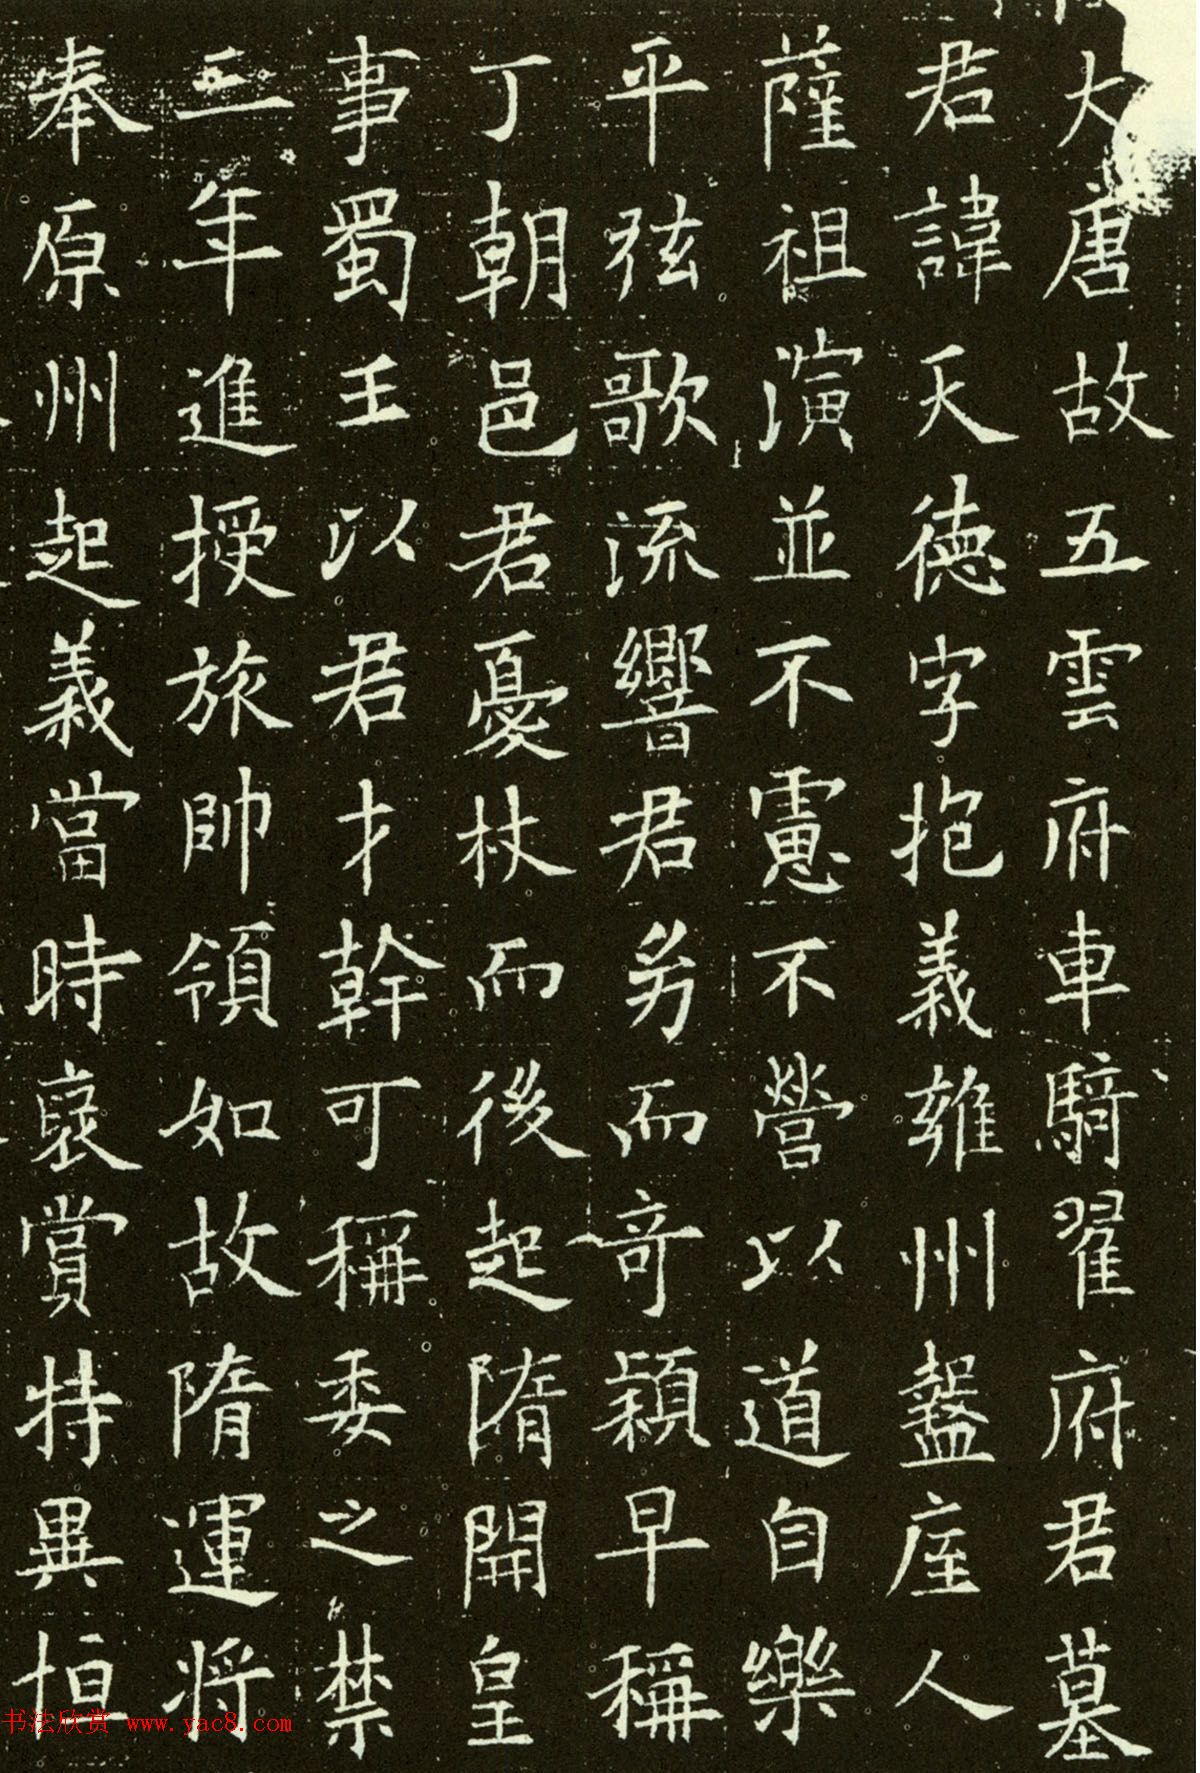 大唐故五雲府車騎翟府君墓
君諱天德字抱義雍州盩厔人
薩祖演並不慮不營以道自樂
平弦歌流響君幼而奇穎早稱
丁朝邑君憂杖而後起隋開皇
事蜀王以君才幹可稱委之禁
三年進授旅帥領如故隋運将
奉原州起義當時裦賞特異恒
书法欣赏 www.yac8.com